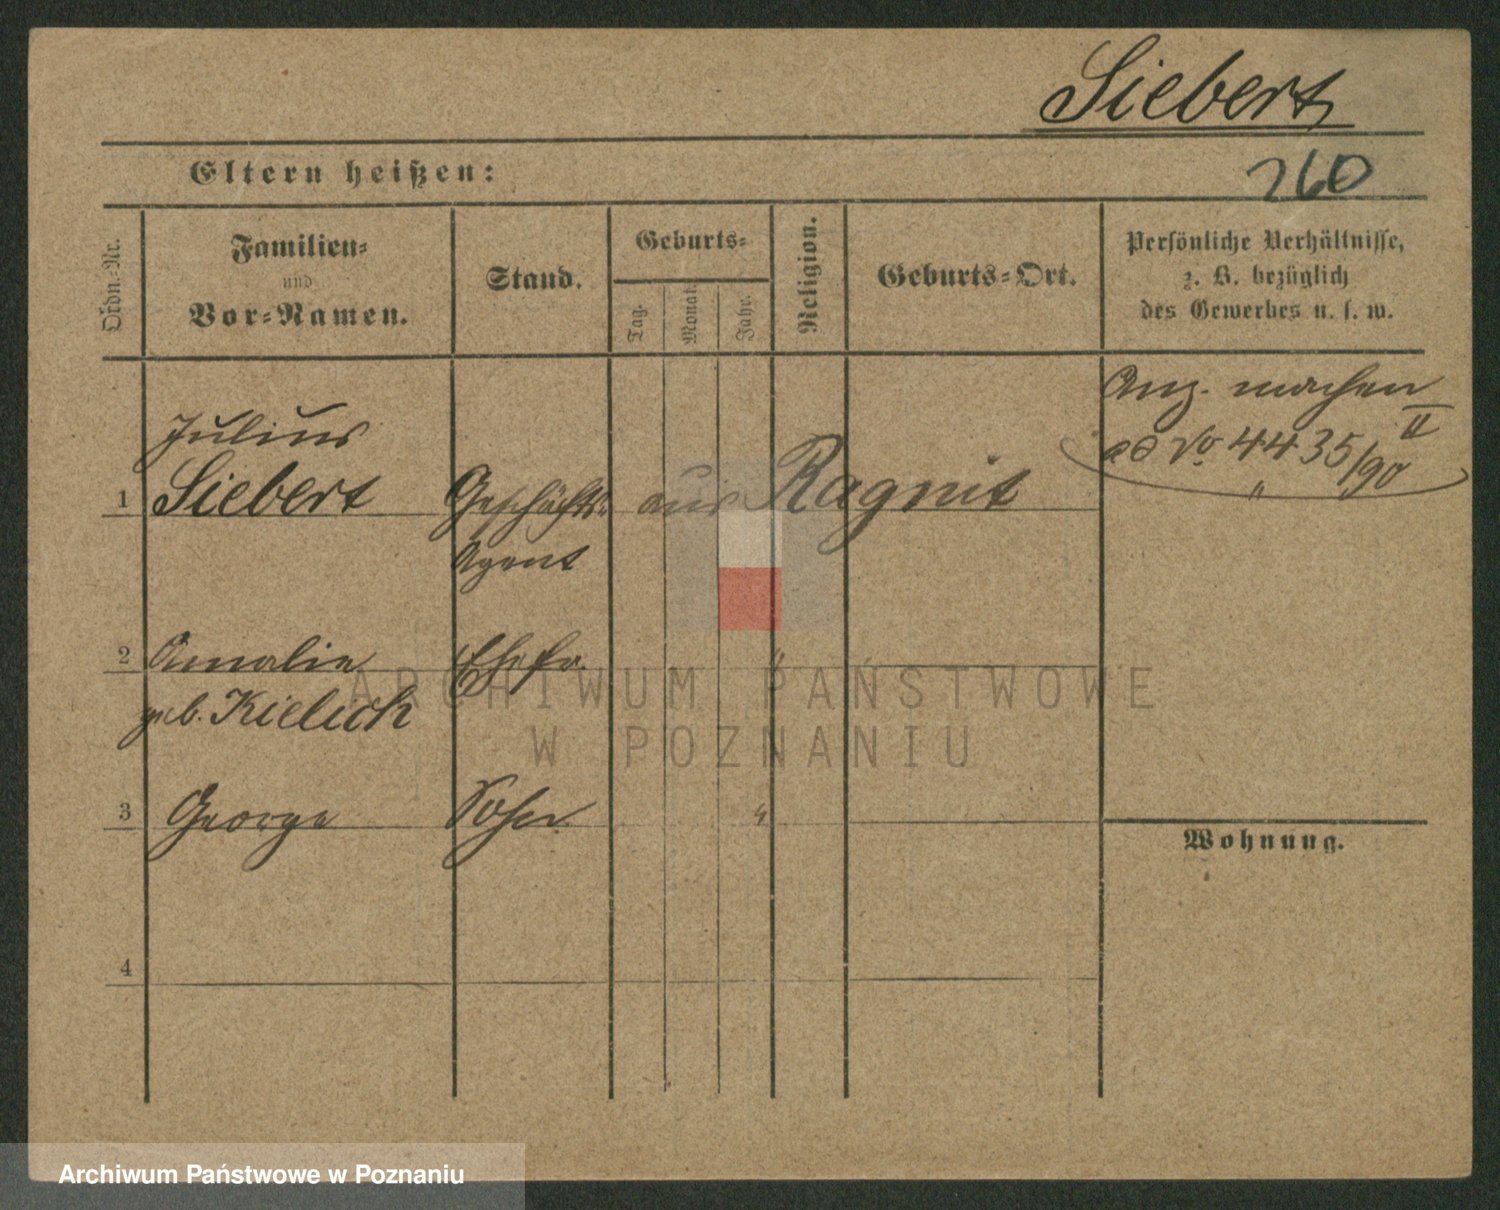 Siebert
Eltern heißen:
260
Ordn.-Nr.
Familien-
und
Vor-Namen.
Stand.
Geburts-
Tag.
Monat.
Jahr.
Religion.
Geburts-Ort.
Persönliche Verhältnisse,
z. B. bezüglich
des Gewerbes u. s. w.
Anz. machen
ad No 4435/90 II
Julius
1 Siebert Geschäfts- aus Ragnit
Agent
2 Amalie Ehefr.
geb. Kielich
3 George Sohn "
Wohnung.
4
ARCHIWUM PAŃSTWOWE
W POZNANIU
Archiwum Państwowe w Poznaniu